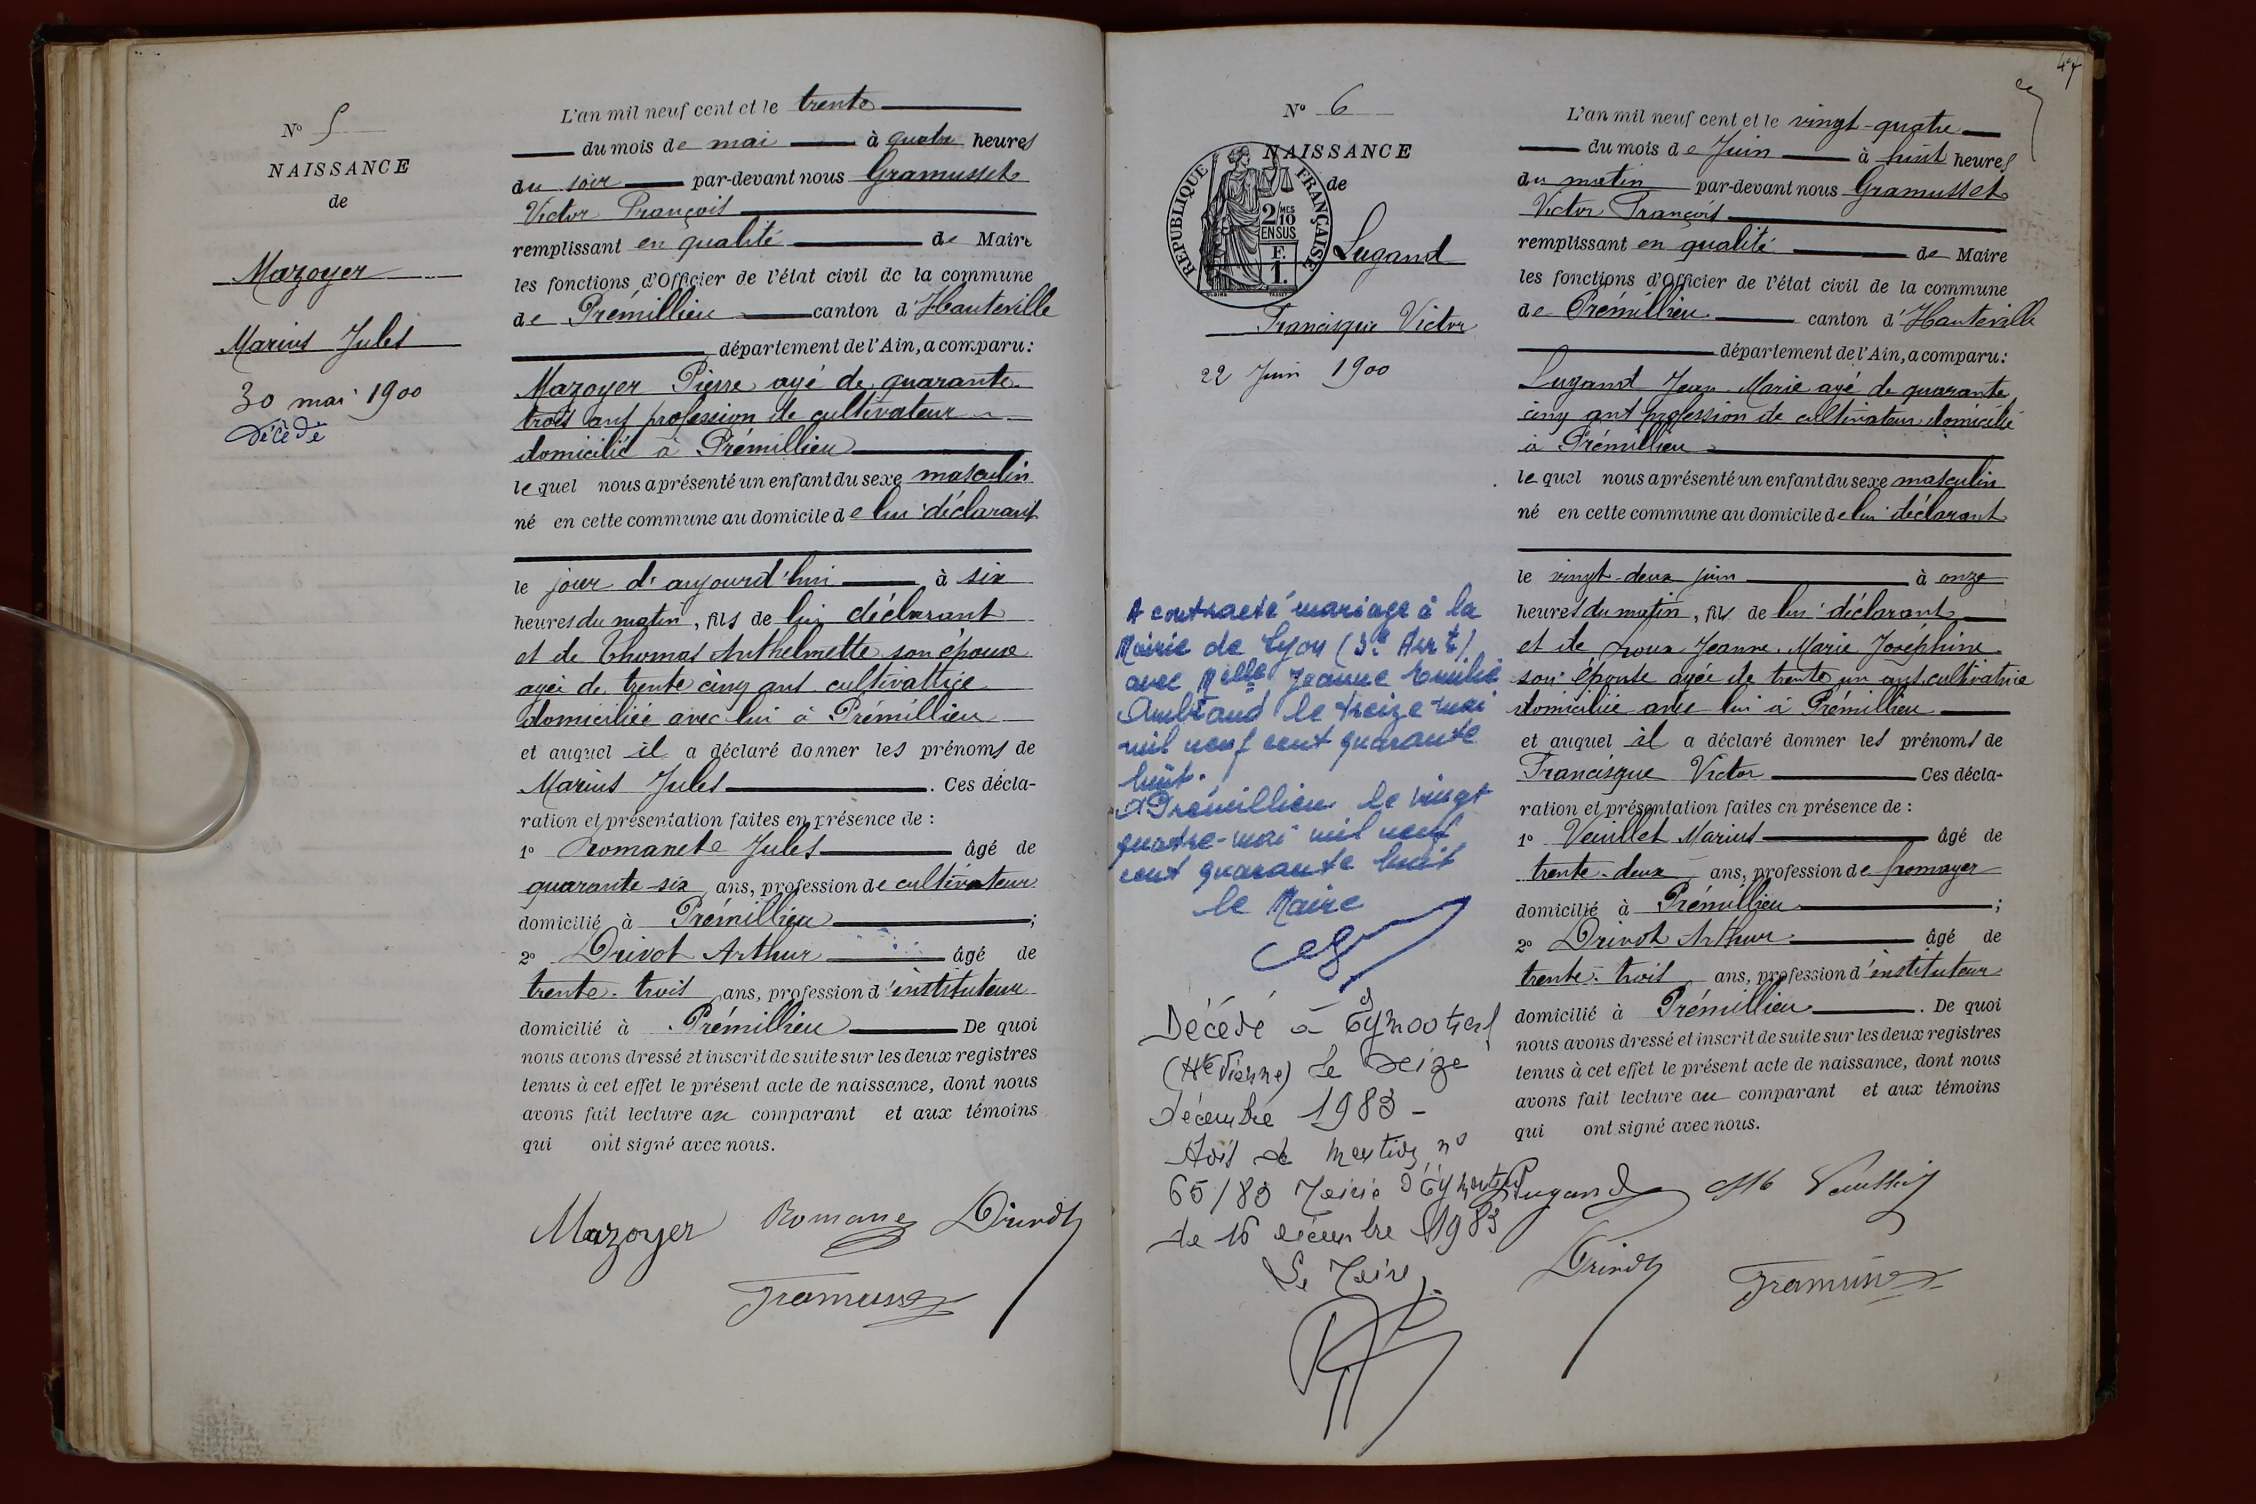 N° 5
NAISSANCE
de
Mazoyer
Marius Jules
30 mai 1900
Décédé
L'an mil neuf cent et le trente
du mois de mai à quatre heures
du soir par-devant nous Gramusset
Victor François
remplissant en qualité de Maire
les fonctions d'Officier de l'état civil de la commune
de Prémillieu canton d'Hauteville
département de l'Ain, a comparu :
Mazoyer Pierre agé de quarante
trois ans profession de cultivateur
domicilié à Prémillieu
lequel nous a présenté un enfant du sexe masculin
né en cette commune au domicile de lui déclarant
le jour d'aujourd'hui à six
heures du matin, fils de lui déclarant
et de Thomas Anthelmette son épouse
agée de trente cinq ans cultivatrice
domiciliée avec lui à Prémillieu
et auquel il a déclaré donner les prénoms de
Marius Jules . Ces décla-
ration et présentation faites en présence de :
1° Romanet Jules âgé de
quarante-six ans, profession de cultivateur
domicilié à Prémillieu ;
2° Drivot Arthur âgé de
trente-trois ans, profession d'instituteur
domicilié à Prémillieu De quoi
nous avons dressé et inscrit de suite sur les deux registres
tenus à cet effet le présent acte de naissance, dont nous
avons fait lecture au comparant et aux témoins
qui ont signé avec nous.
Mazoyer Romane Drivot
Gramusset
47
N° 6
NAISSANCE
de
RÉPUBLIQUE FRANÇAISE
2/10 MES
EN SUS
F.
1.
Lugand
Francisque Victor
22 Juin 1900
A contracté mariage à la
Mairie de Lyon (3e Arrt)
avec Melle Jeanne Emilie
le treize mai
mil neuf cent quarante
huit.
A Prémillieu le vingt
quatre-mai mil neuf
cent quarante huit
le Maire
Décédé à Eymoutiers
(Hte Vienne) le seize
décembre 1983 -
Avis de mention n°
65/83 Mairie d'Eymoutiers
de 16 décembre 1983
Le Maire,
L'an mil neuf cent et le vingt-quatre
du mois de Juin à huit heures
du matin par-devant nous Gramusset
Victor François
remplissant en qualité de Maire
les fonctions d'Officier de l'état civil de la commune
de Prémillieu canton d'Hauteville
département de l'Ain, a comparu :
Lugand Jean-Marie agé de quarante
cinq ans profession de cultivateur domicilié
à Prémillieu
lequel nous a présenté un enfant du sexe masculin
né en cette commune au domicile de lui déclarant
le vingt-deux juin à onze
heures du matin, fils de lui déclarant
et de Roux Jeanne-Marie Joséphine
son épouse agée de trente un ans cultivatrice
domiciliée avec lui à Prémillieu
et auquel il a déclaré donner les prénoms de
Francisque Victor Ces décla-
ration et présentation faites en présence de :
1° Veuillet Marius âgé de
trente-deux ans, profession de fromager
domicilié à Prémillieu ;
2° Drivot Arthur âgé de
trente-trois ans, profession d'instituteur
domicilié à Prémillieu . De quoi
nous avons dressé et inscrit de suite sur les deux registres
tenus à cet effet le présent acte de naissance, dont nous
avons fait lecture au comparant et aux témoins
qui ont signé avec nous.
Lugand
Drivot Gramusset